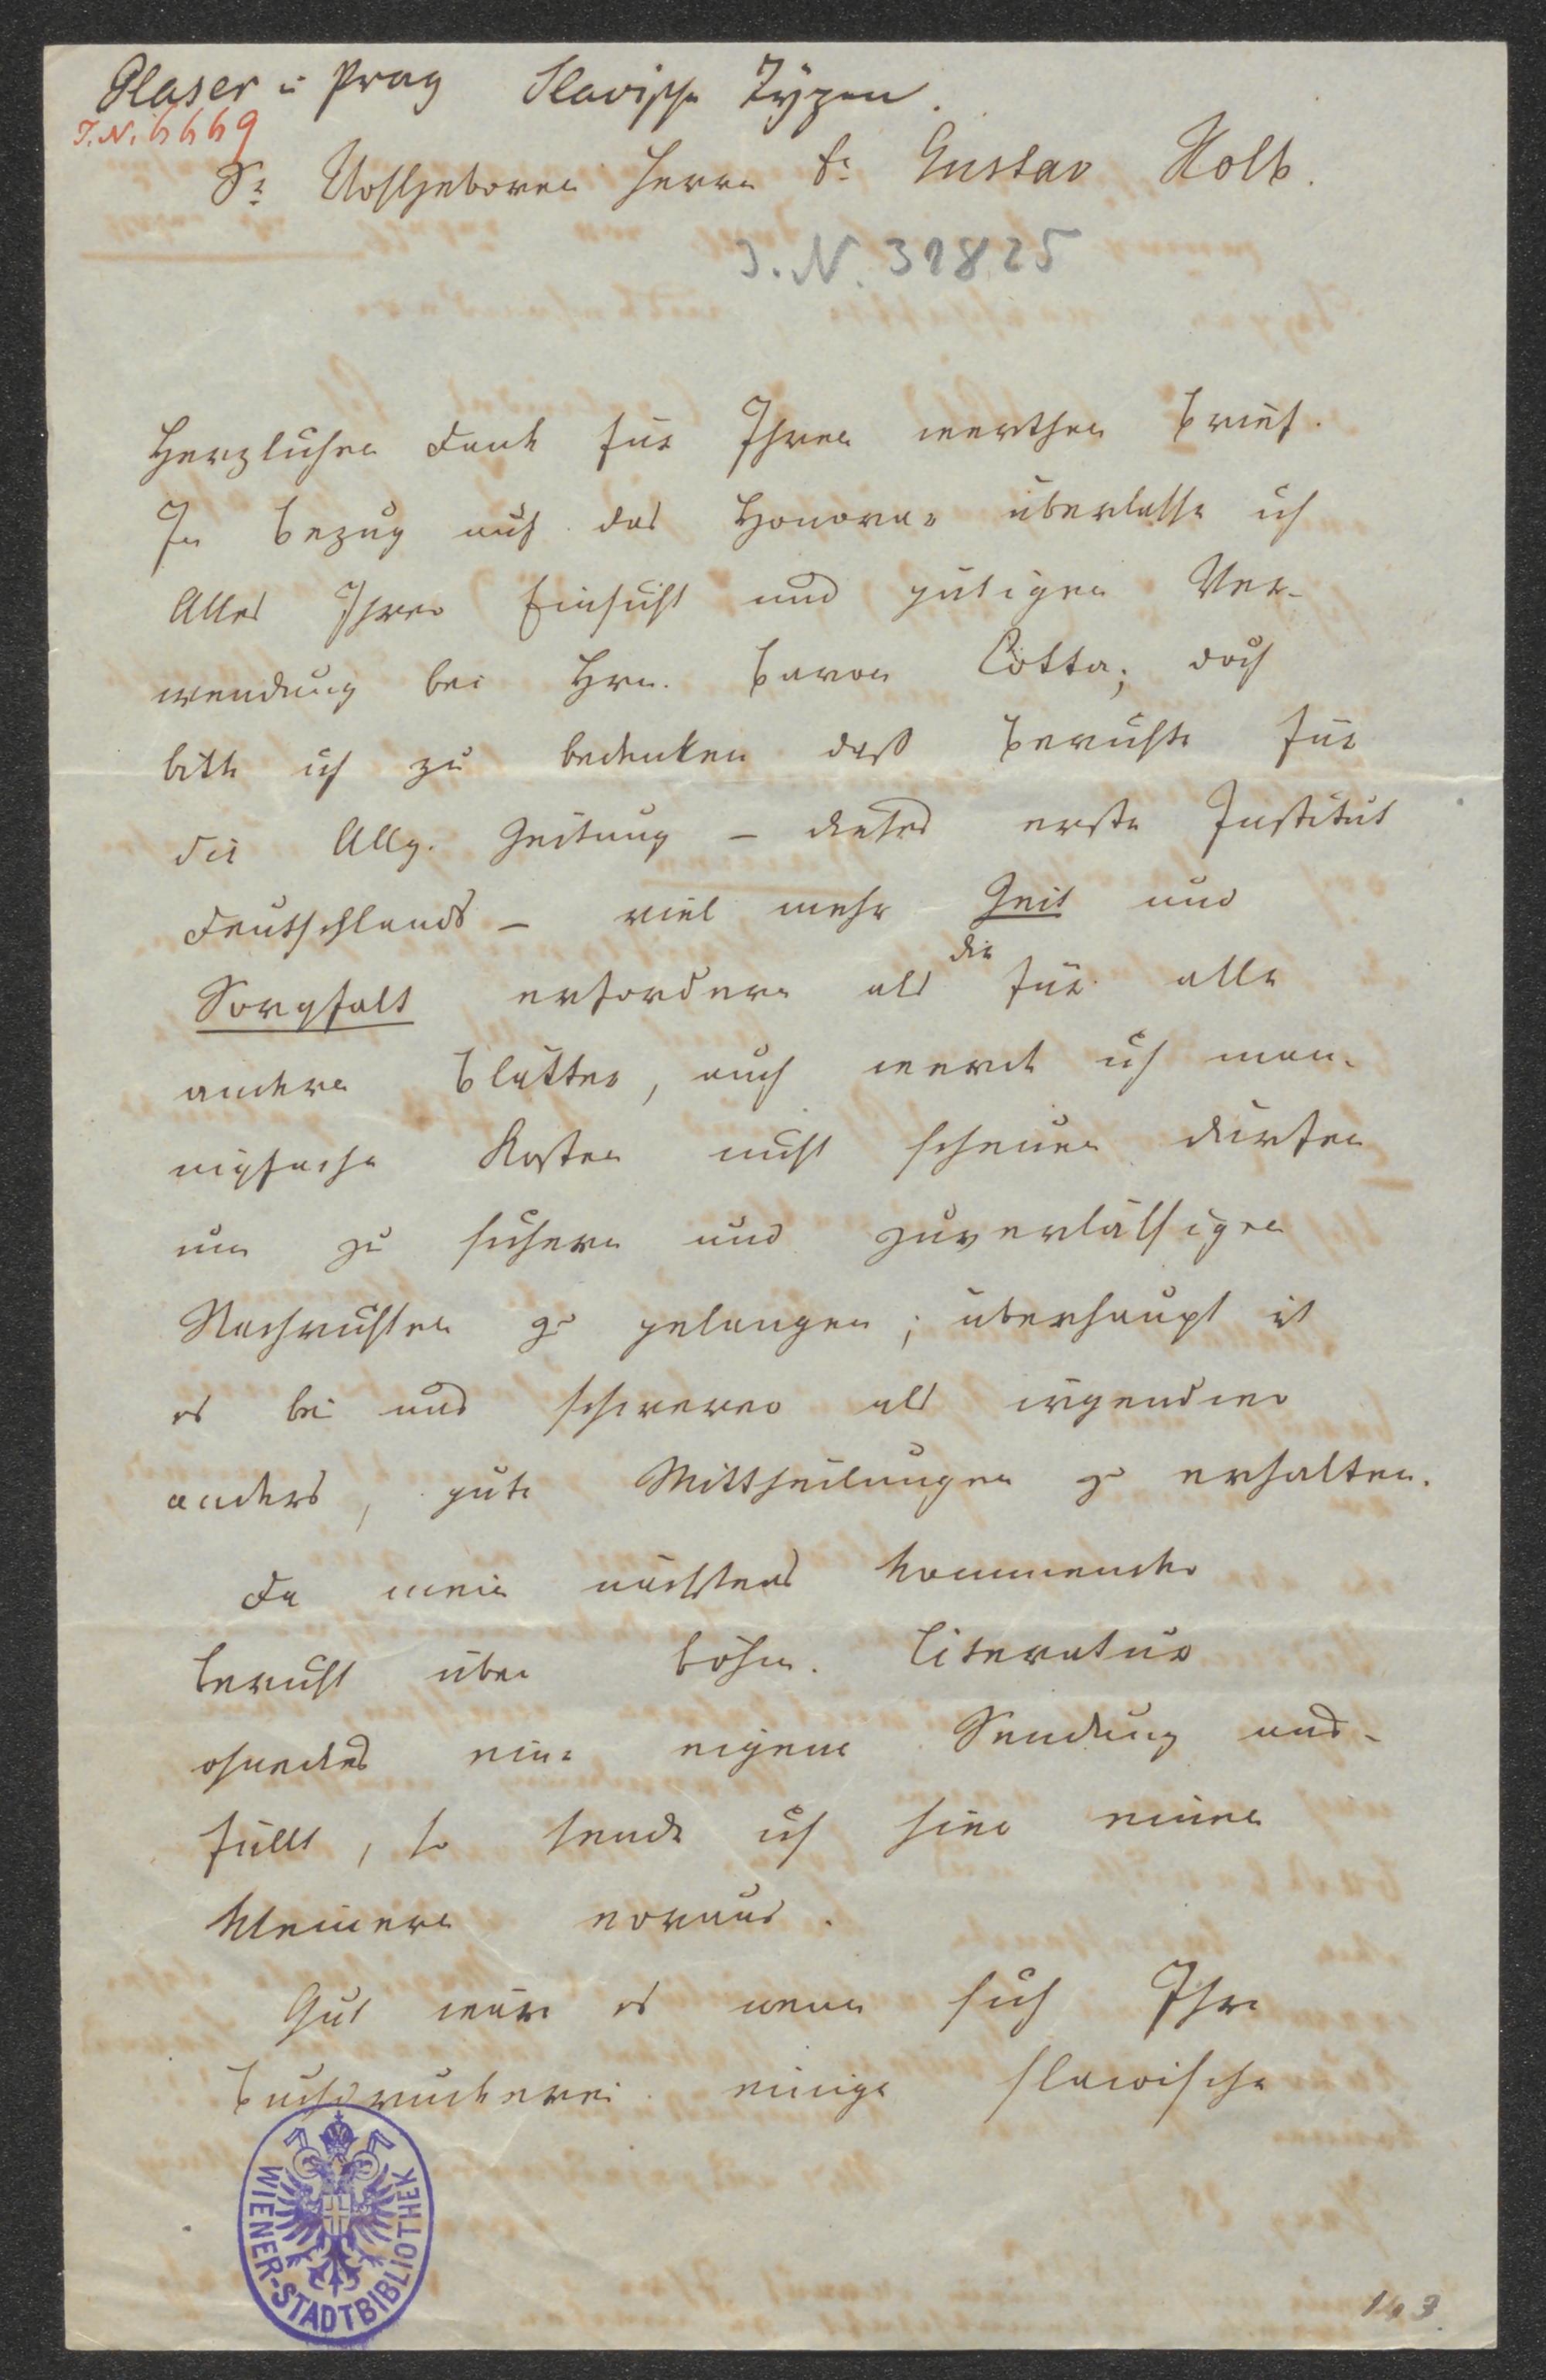 Glaser in Prag Slavische Typen.
J.N. 6669
Sr Wohlgeboren Herrn Dr Gustav Kolb.
J.N. 31825
Herzlichen Dank für Ihren werthen Brief.
In Bezug auf das Honorar überlasse ich
Alles Ihrer Einsicht und gütigen Ver-
wendung bei Hrn. Baron Cotta; doch
bitte ich zu bedenken daß Berichte für
die Allg. Zeitung – dieses erste Institut
Deutschlands – viel mehr Zeit und
Sorgfalt erfordern als die für alle
andern Blätter, auch werde ich man-
nigfache Kosten nicht scheuen dürfen
um zu sichern und zuverlässigen
Nachrichten zu gelangen; überhaupt ist
es bei uns schwerer als irgendwo
anders, gute Mittheilungen zu erhalten.
Da mein nächstens kommender
Bericht über böhm. Literatur
ohnedies eine eigene Sendung aus-
füllt, so sende ich hier einen
kleinern voraus.
Gut wäre es wenn sich Ihre
Buchdruckerei einige slawische
WIENER-STADTBIBLIOTHEK
143.